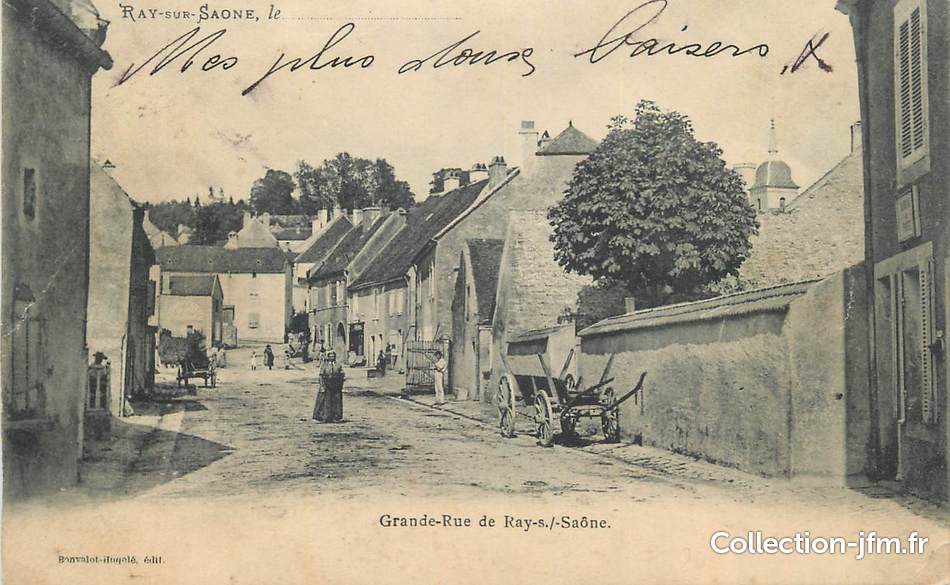 RAY-SUR-SAONE, le
Mes plus doux baisers
Grande-Rue de Ray-s./-Saône.
Bonvalot-Hugelé, édit.
Collection-jfm.fr